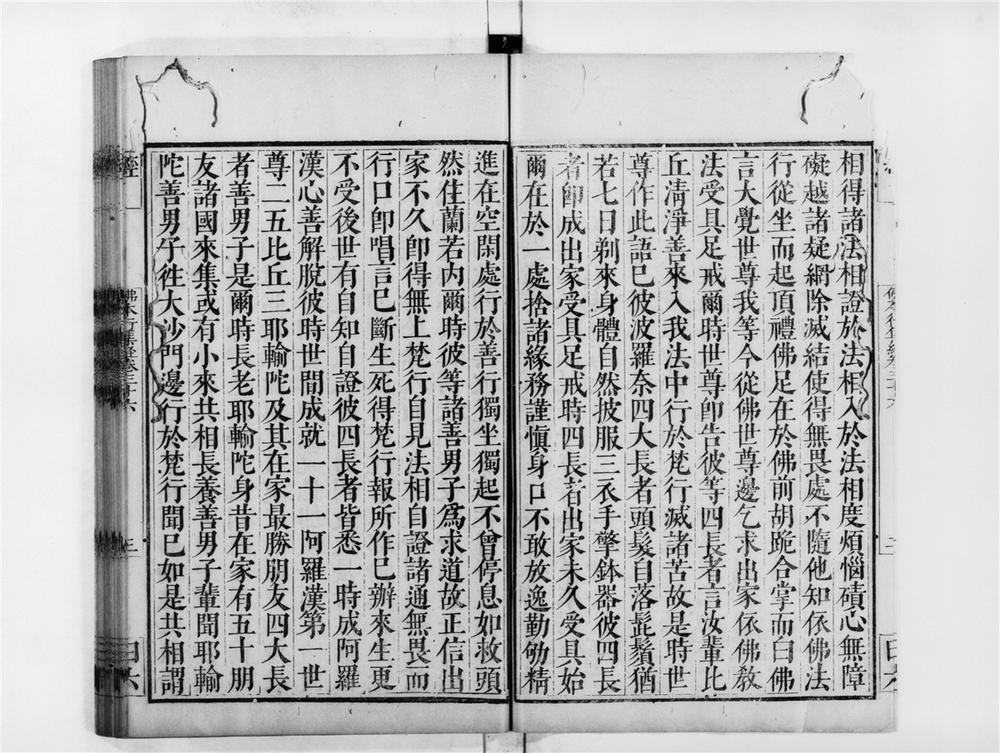 相得諸法相證於法相入於法相度煩惱磧心無障
礙越諸疑網除滅結使得無畏處不隨他知依佛法
行從坐而起頂禮佛足在於佛前胡跪合掌而曰佛
言大覺世尊我等今從佛世尊邊乞求出家依佛教
法受具足戒爾時世尊卽告彼等四長者言汝輩比
丘清淨善來入我法中行於梵行滅諸苦故是時世
尊作此語已彼波羅奈四大長者頭髮自落髭鬚猶
若七日剃來身體自然披服三衣手擎鉢器彼四長
者卽成出家受具足戒時四長者出家未久受具始
爾在於一處捨諸緣務謹愼身口不敢放逸勤劬精
進在空閑處行於善行獨坐獨起不曾停息如救頭
然住蘭若內爾時彼等諸善男子爲求道故正信出
家不久卽得無上梵行自見法相自證諸通無畏而
行口卽唱言已斷生死得梵行報所作已辦來生更
不受後世有自知自證彼四長者皆悉一時成阿羅
漢心善解脫彼時世間成就一十一阿羅漢第一世
尊二五比丘三耶輸陀及其在家最勝朋友四大長
者善男子是爾時長老耶輸陀身昔在家有五十朋
友諸國來集或有小來共相長養善男子輩聞耶輸
陀善男子往大沙門邊行於梵行聞已如是共相謂
佛本行集經卷三十六
三